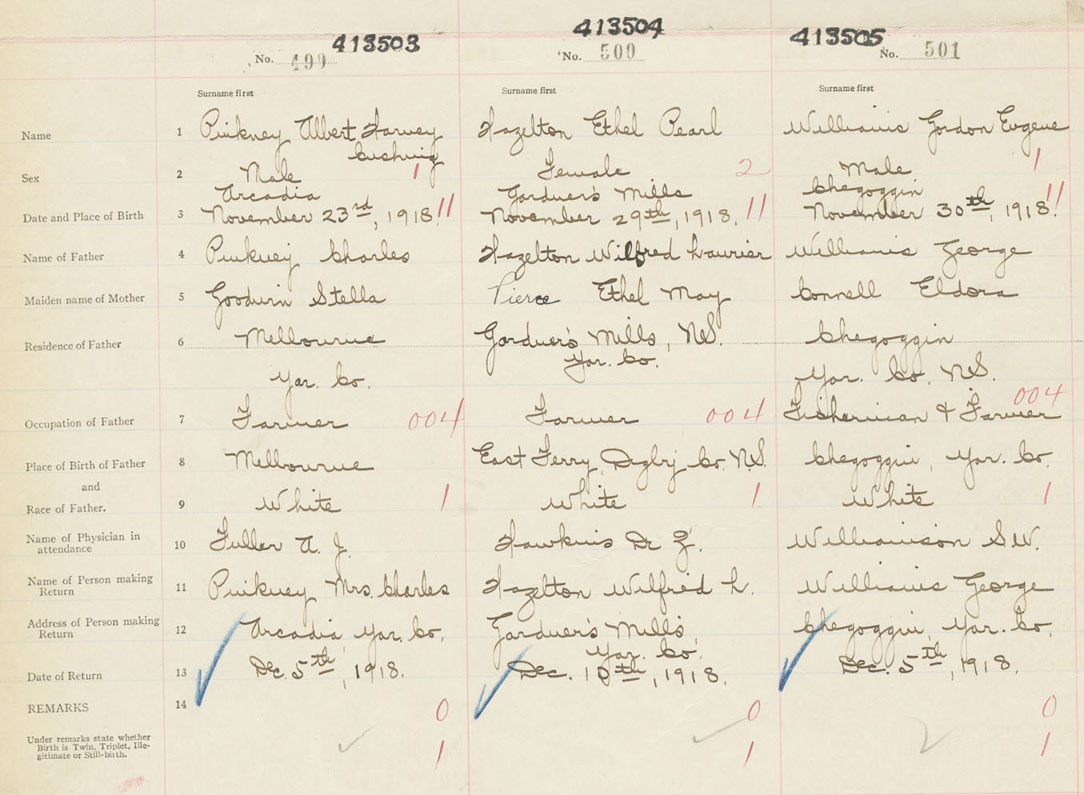 413503 413504 413505
No. 499 No. 500 No. 501
Surname first Surname first Surname first
Name 1 Pinkney Albert Harvey Hazelton Ethel Pearl Williams Gordon Eugene
Cushing
Sex 2 Male 1 Female 2 Male 1
Arcadia Gardner's Mills Chegoggin
Date and Place of Birth 3 November 23rd, 1918 11 November 29th, 1918. 11 November 30th, 1918. 11
Name of Father 4 Pinkney Charles Hazelton Wilfred Laurier Williams George
Maiden name of Mother 5 Goodwin Stella Pierce Ethel May Connell Eldora
Residence of Father 6 Melbourne Gardner's Mills, N.S. Chegoggin
Yar. Co. Yar. Co. Yar. Co. N.S.
Occupation of Father 7 Farmer 004 Farmer 004 Fisherman & Farmer 004
Place of Birth of Father 8 Melbourne East Ferry Digby Co. N.S. Chegoggin, Yar. Co.
and
Race of Father. 9 White 1 White 1 White 1
Name of Physician in
attendance 10 Fuller A. J. Hawkins Dr Z. Williamson S.W.
Name of Person making
Return 11 Pinkney Mrs. Charles Hazelton Wilfred L. Williams George
Address of Person making
Return 12 Arcadia Yar. Co. Gardner's Mills, Chegoggin, Yar. Co.
Yar. Co.
Date of Return 13 Dec. 5th, 1918. Dec. 10th, 1918. Dec. 5th, 1918.
REMARKS 14 0 0 0
Under remarks state whether
Birth is Twin, Triplet, Ille-
gitimate or Still-birth. 1 1 1